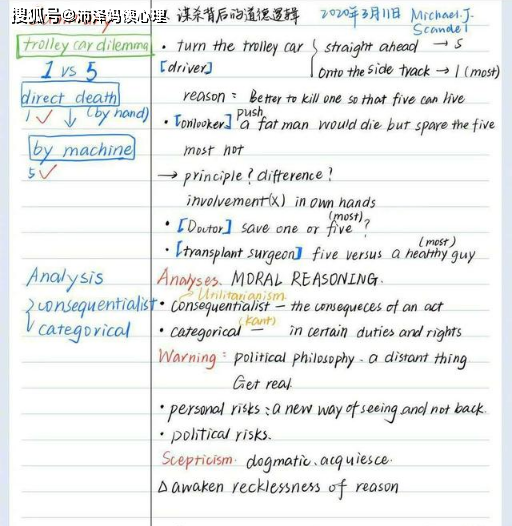 搜狐号@沛泽妈谈心理
谋杀背后的道德逻辑 2020年3月11日 Michael.J. Scandel
trolley car dilemma
1 vs 5
direct death
1 ✓ ↓ (by hand)
by machine
5 ✓
Analysis
consequentialist
categorical
• turn the trolley car { straight ahead → 5
[driver] onto the side track → 1 (most)
reason: Better to kill one so that five can live
• [onlooker] push a fat man would die but spare the five
most not
→ principle? difference?
involvement(x) in own hands
• [Doutor] save one or five? (most)
• [transplant surgeon] five versus a healthy guy (most)
Analyses. MORAL REASONING.
Utilitarianism
• Consequentialist — the consequeces of an act
• categorical — (Kant) in certain duties and rights
Warning: political philosophy. a distant thing
Get real.
• personal risks: a new way of seeing and not back.
• political risks.
Scepticism. dogmatic. acquiesce.
Δ awaken recklessness of reason